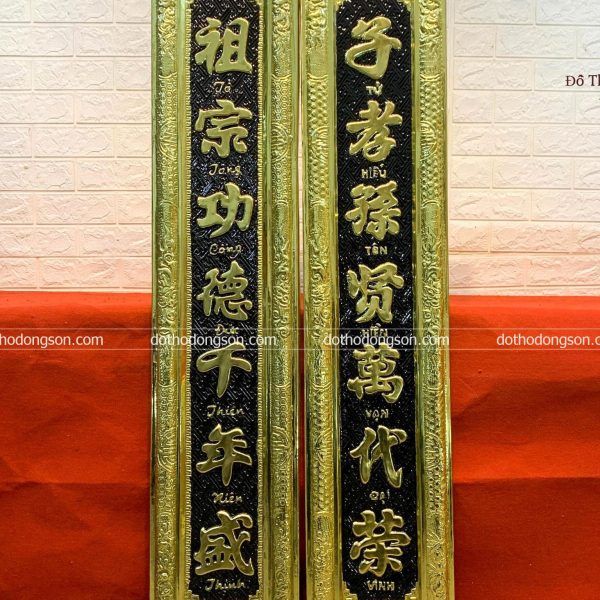 祖
Tổ
宗
Tông
功
Công
德
Đức
千
Thiên
年
Niên
盛
Thịnh
子
TỬ
孝
HIẾU
孫
TÔN
贤
HIỀN
萬
VẠN
代
ĐẠI
荣
VINH
dothodongson.com
dothodongson.com
Đồ Th